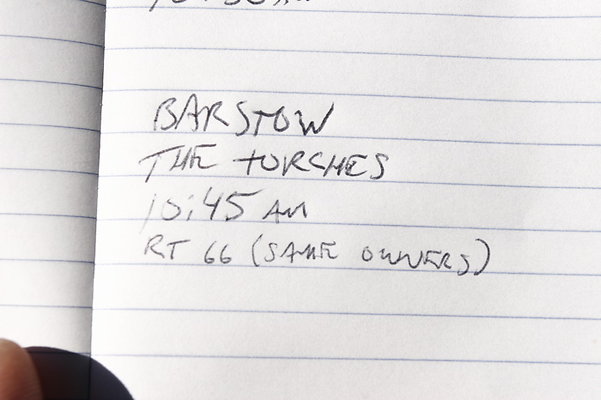 BARSTOW
THE TORCHES
10:45 AM
RT 66 (SAME OWNERS)